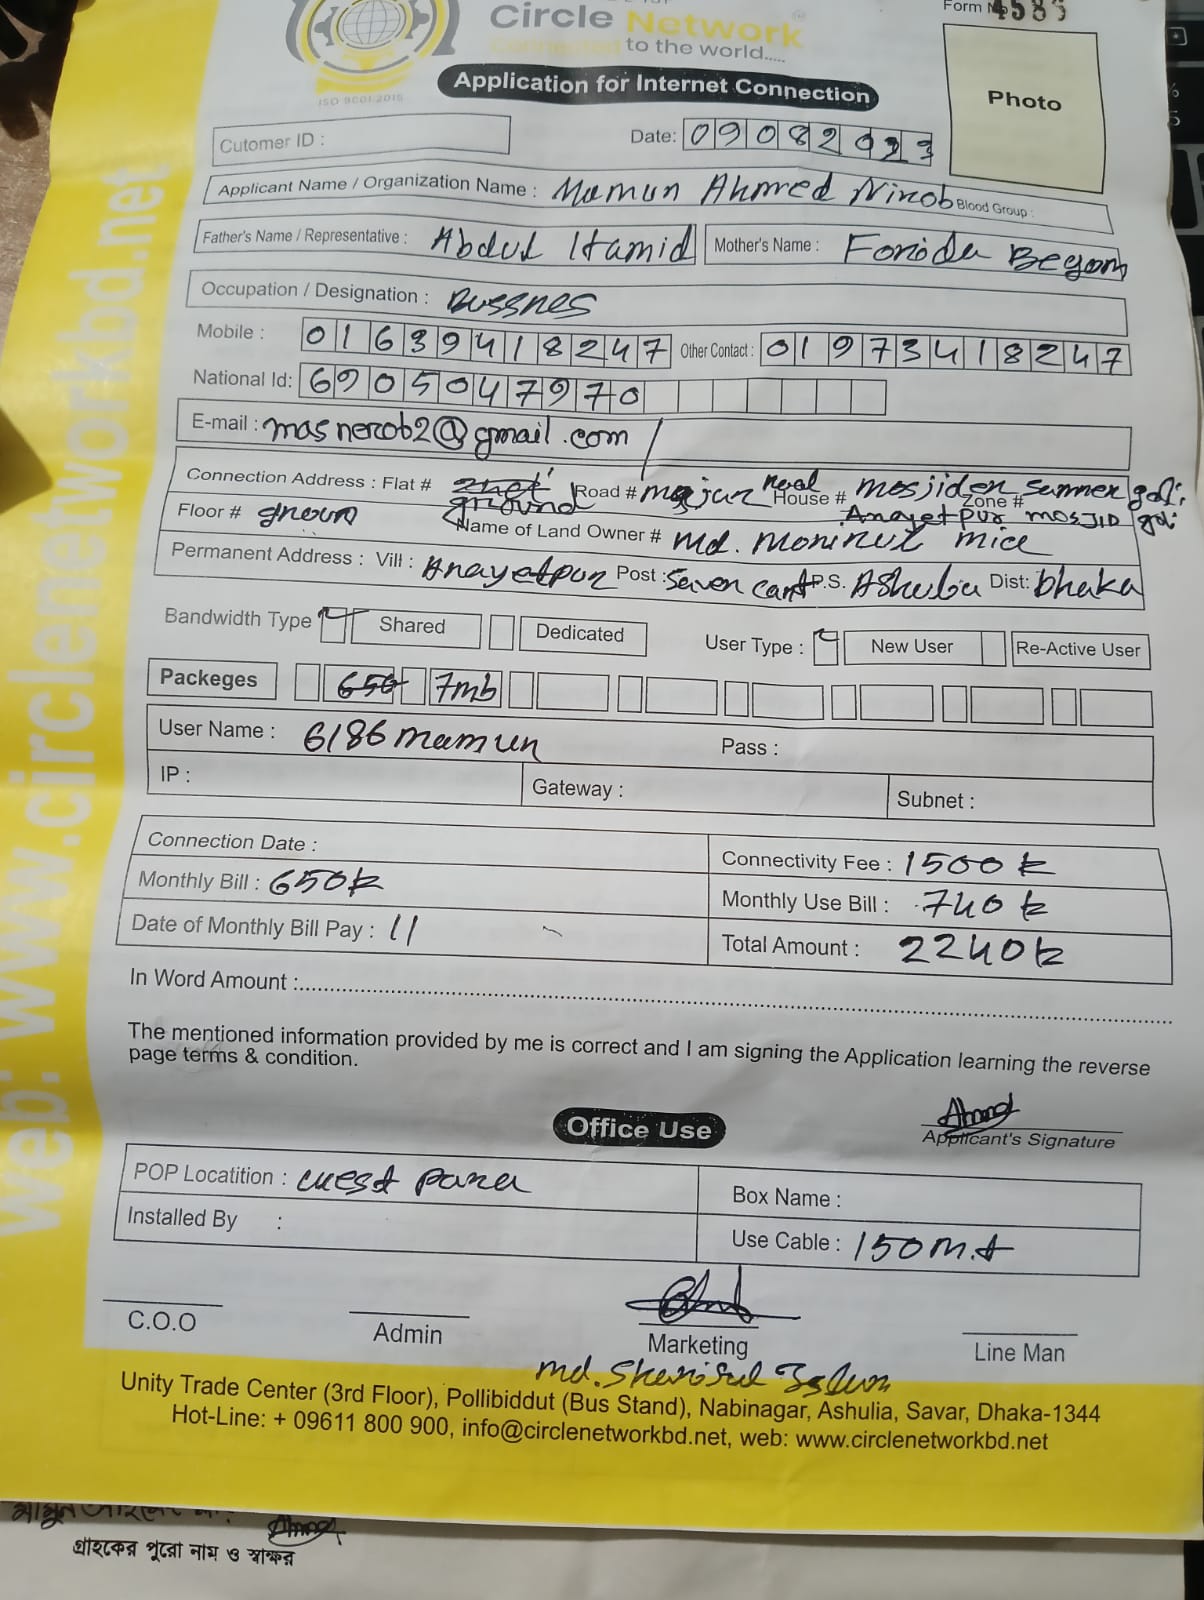 Circle Network
Connected to the world.....
Form No 4585
ISO 9001:2015
Application for Internet Connection
Photo
Cutomer ID :
Date: 09082023
Applicant Name / Organization Name : Mamun Ahmed Nirob Blood Group :
Father's Name / Representative : Abdul Hamid Mother's Name : Forida Begom
Occupation / Designation : Bussnes
Mobile : 01639418247 Other Contact : 01973418247
National Id: 6905047970
E-mail : masnerob2@gmail.com
Connection Address : Flat # ground Road # House # mosjider samner goli, Zone #
Floor # groun Name of Land Owner # md. monirul mice Anayetpur mosjid goli
Permanent Address : Vill : Anayetpur Post : Saven cant P.S. Ashulia Dist: Dhaka
Bandwidth Type Shared Dedicated User Type : New User Re-Active User
Packeges 650 7mb
User Name : 6186mamun Pass :
IP : Gateway : Subnet :
Connection Date : Connectivity Fee : 1500 tk
Monthly Bill : 650tk Monthly Use Bill : 740 tk
Date of Monthly Bill Pay : 11 Total Amount : 2240tk
In Word Amount :
The mentioned information provided by me is correct and I am signing the Application learning the reverse
page terms & condition.
Ahmed
Applicant's Signature
Office Use
POP Locatition : west para Box Name :
Installed By : Use Cable : 150m.t
C.O.O Admin Marketing Line Man
md. Sharisul Islam
Unity Trade Center (3rd Floor), Pollibiddut (Bus Stand), Nabinagar, Ashulia, Savar, Dhaka-1344
Hot-Line: + 09611 800 900, info@circlenetworkbd.net, web: www.circlenetworkbd.net
web: www.circlenetworkbd.net
গ্রাহকের পুরো নাম ও স্বাক্ষর